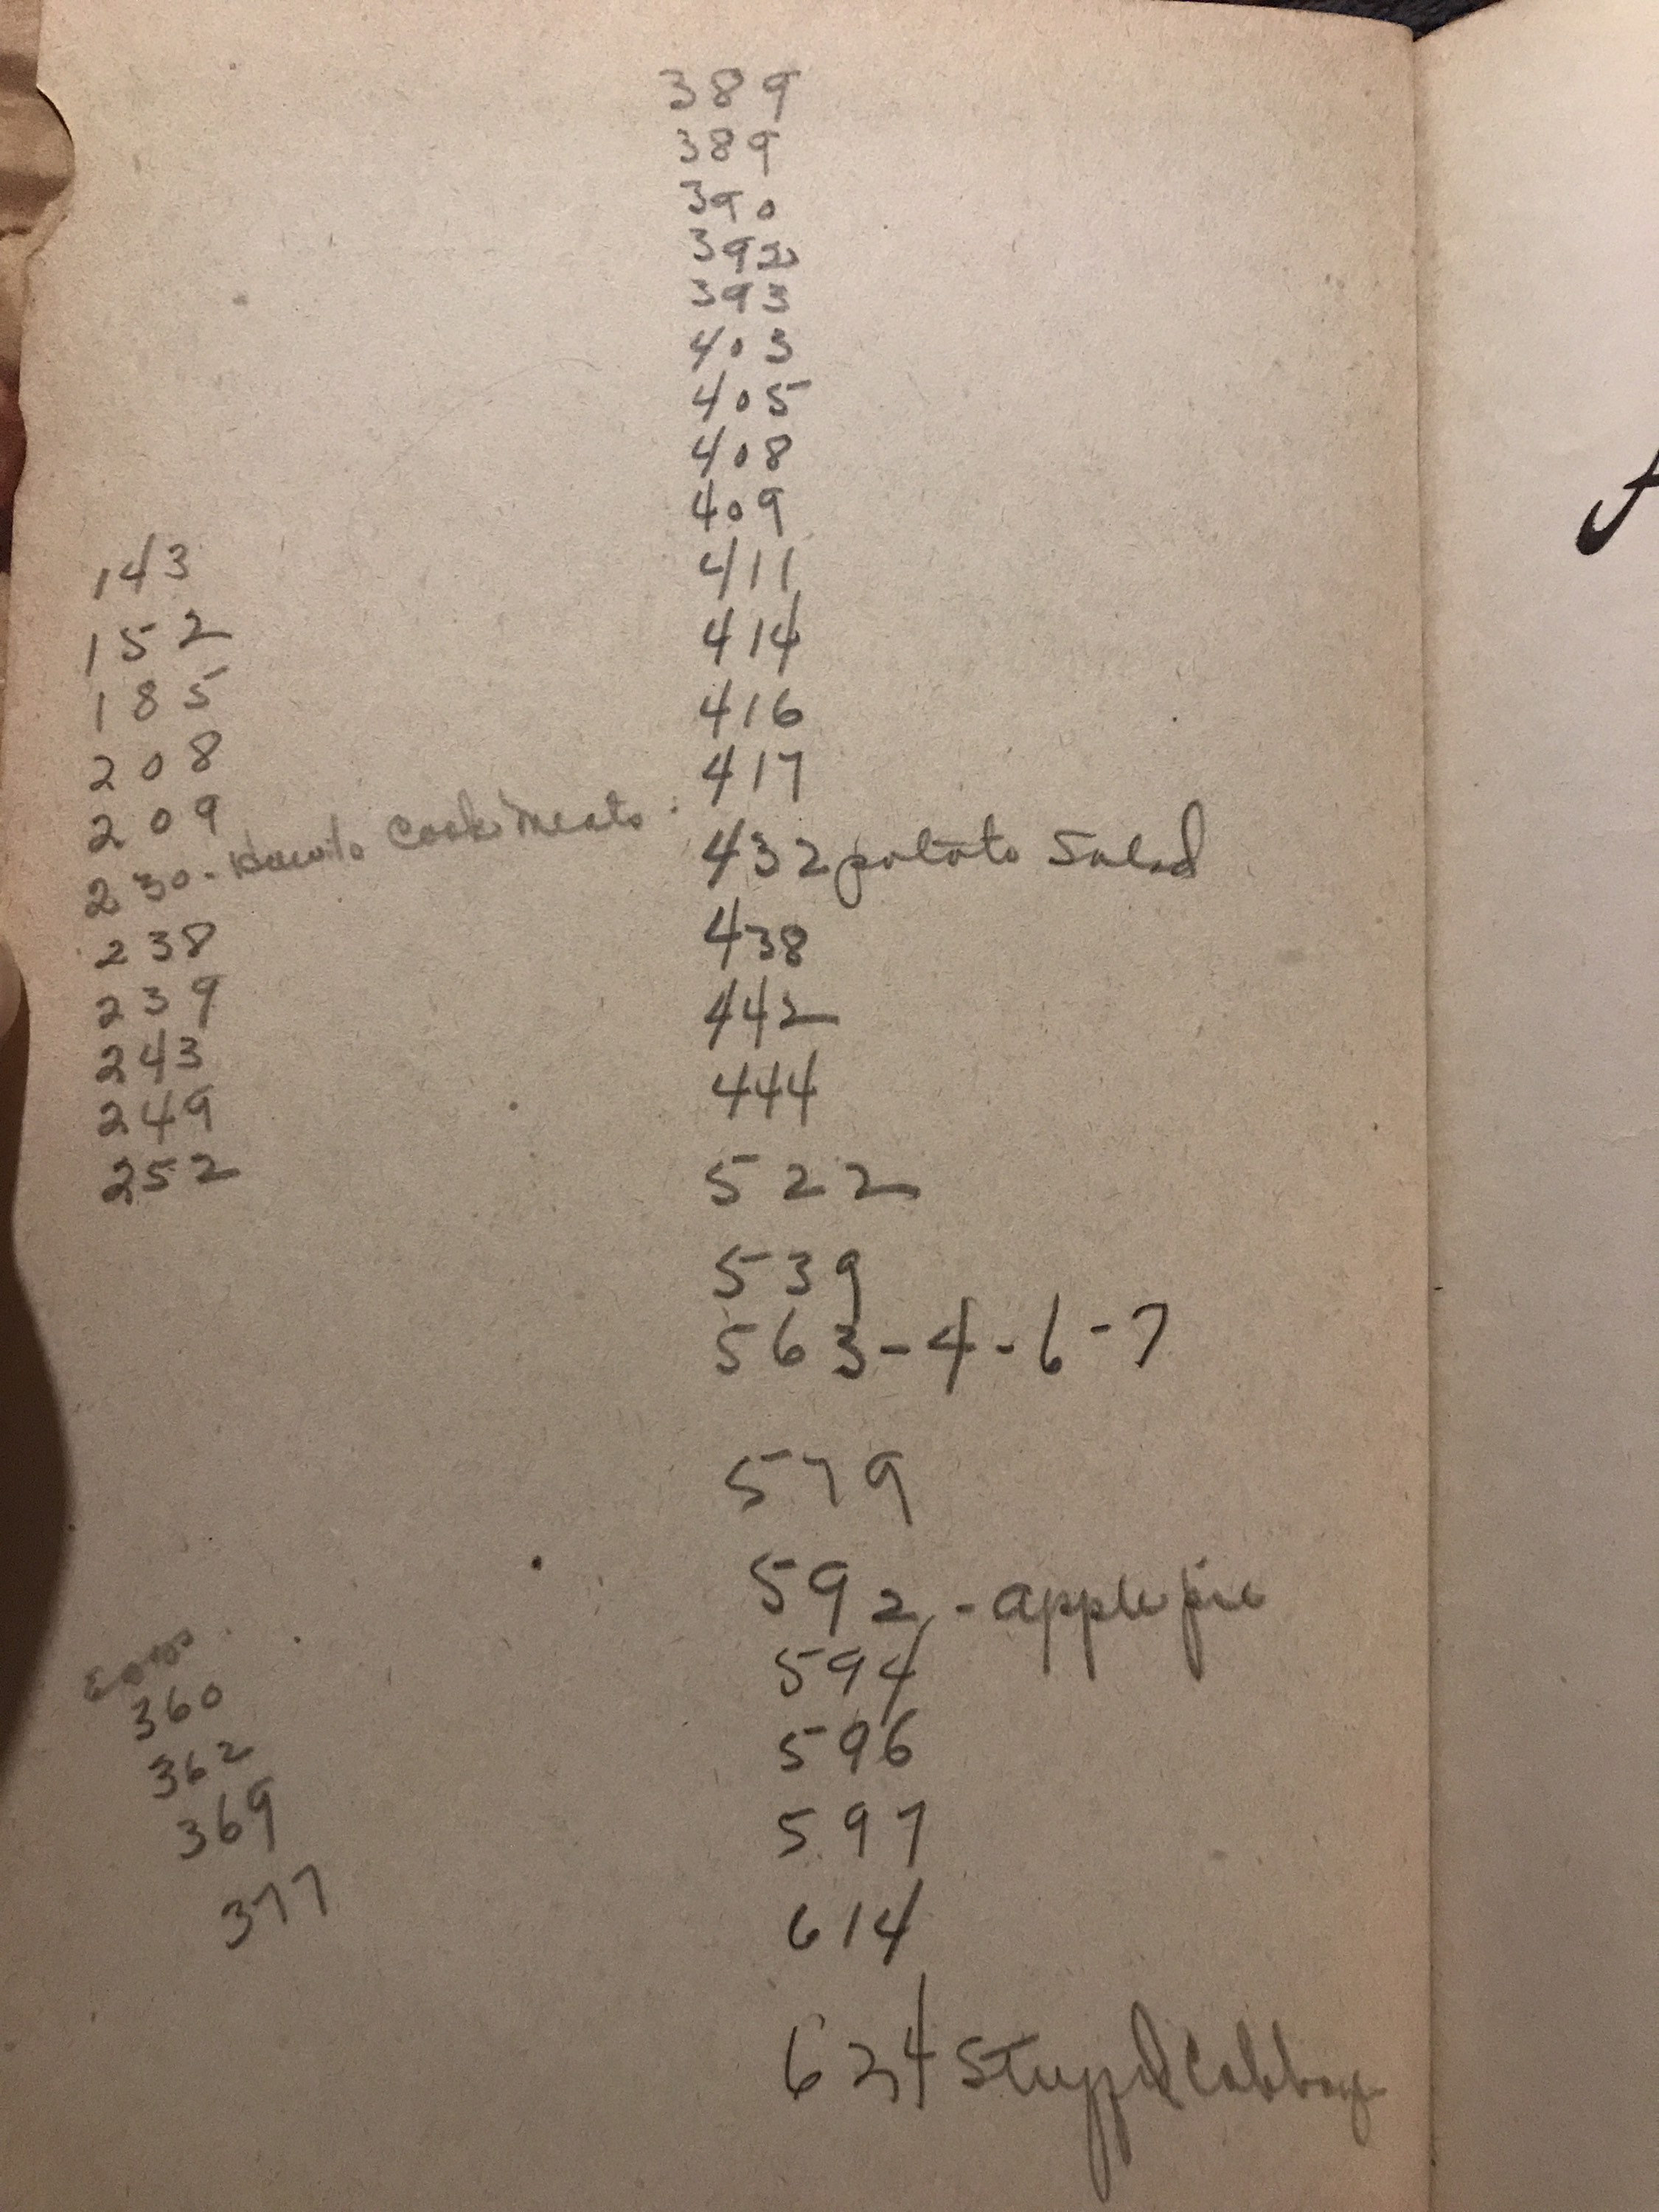 143
152
185
208
209
230 - How to Cook Meats
238
239
243
249
252
Eggs
360
362
369
377
389
389
390
392
393
403
405
408
409
411
414
416
417
432 potato Salad
438
442
444
522
539
563-4-6-7
579
592 - apple pie
594
596
597
614
624 Stuffed Cabbage